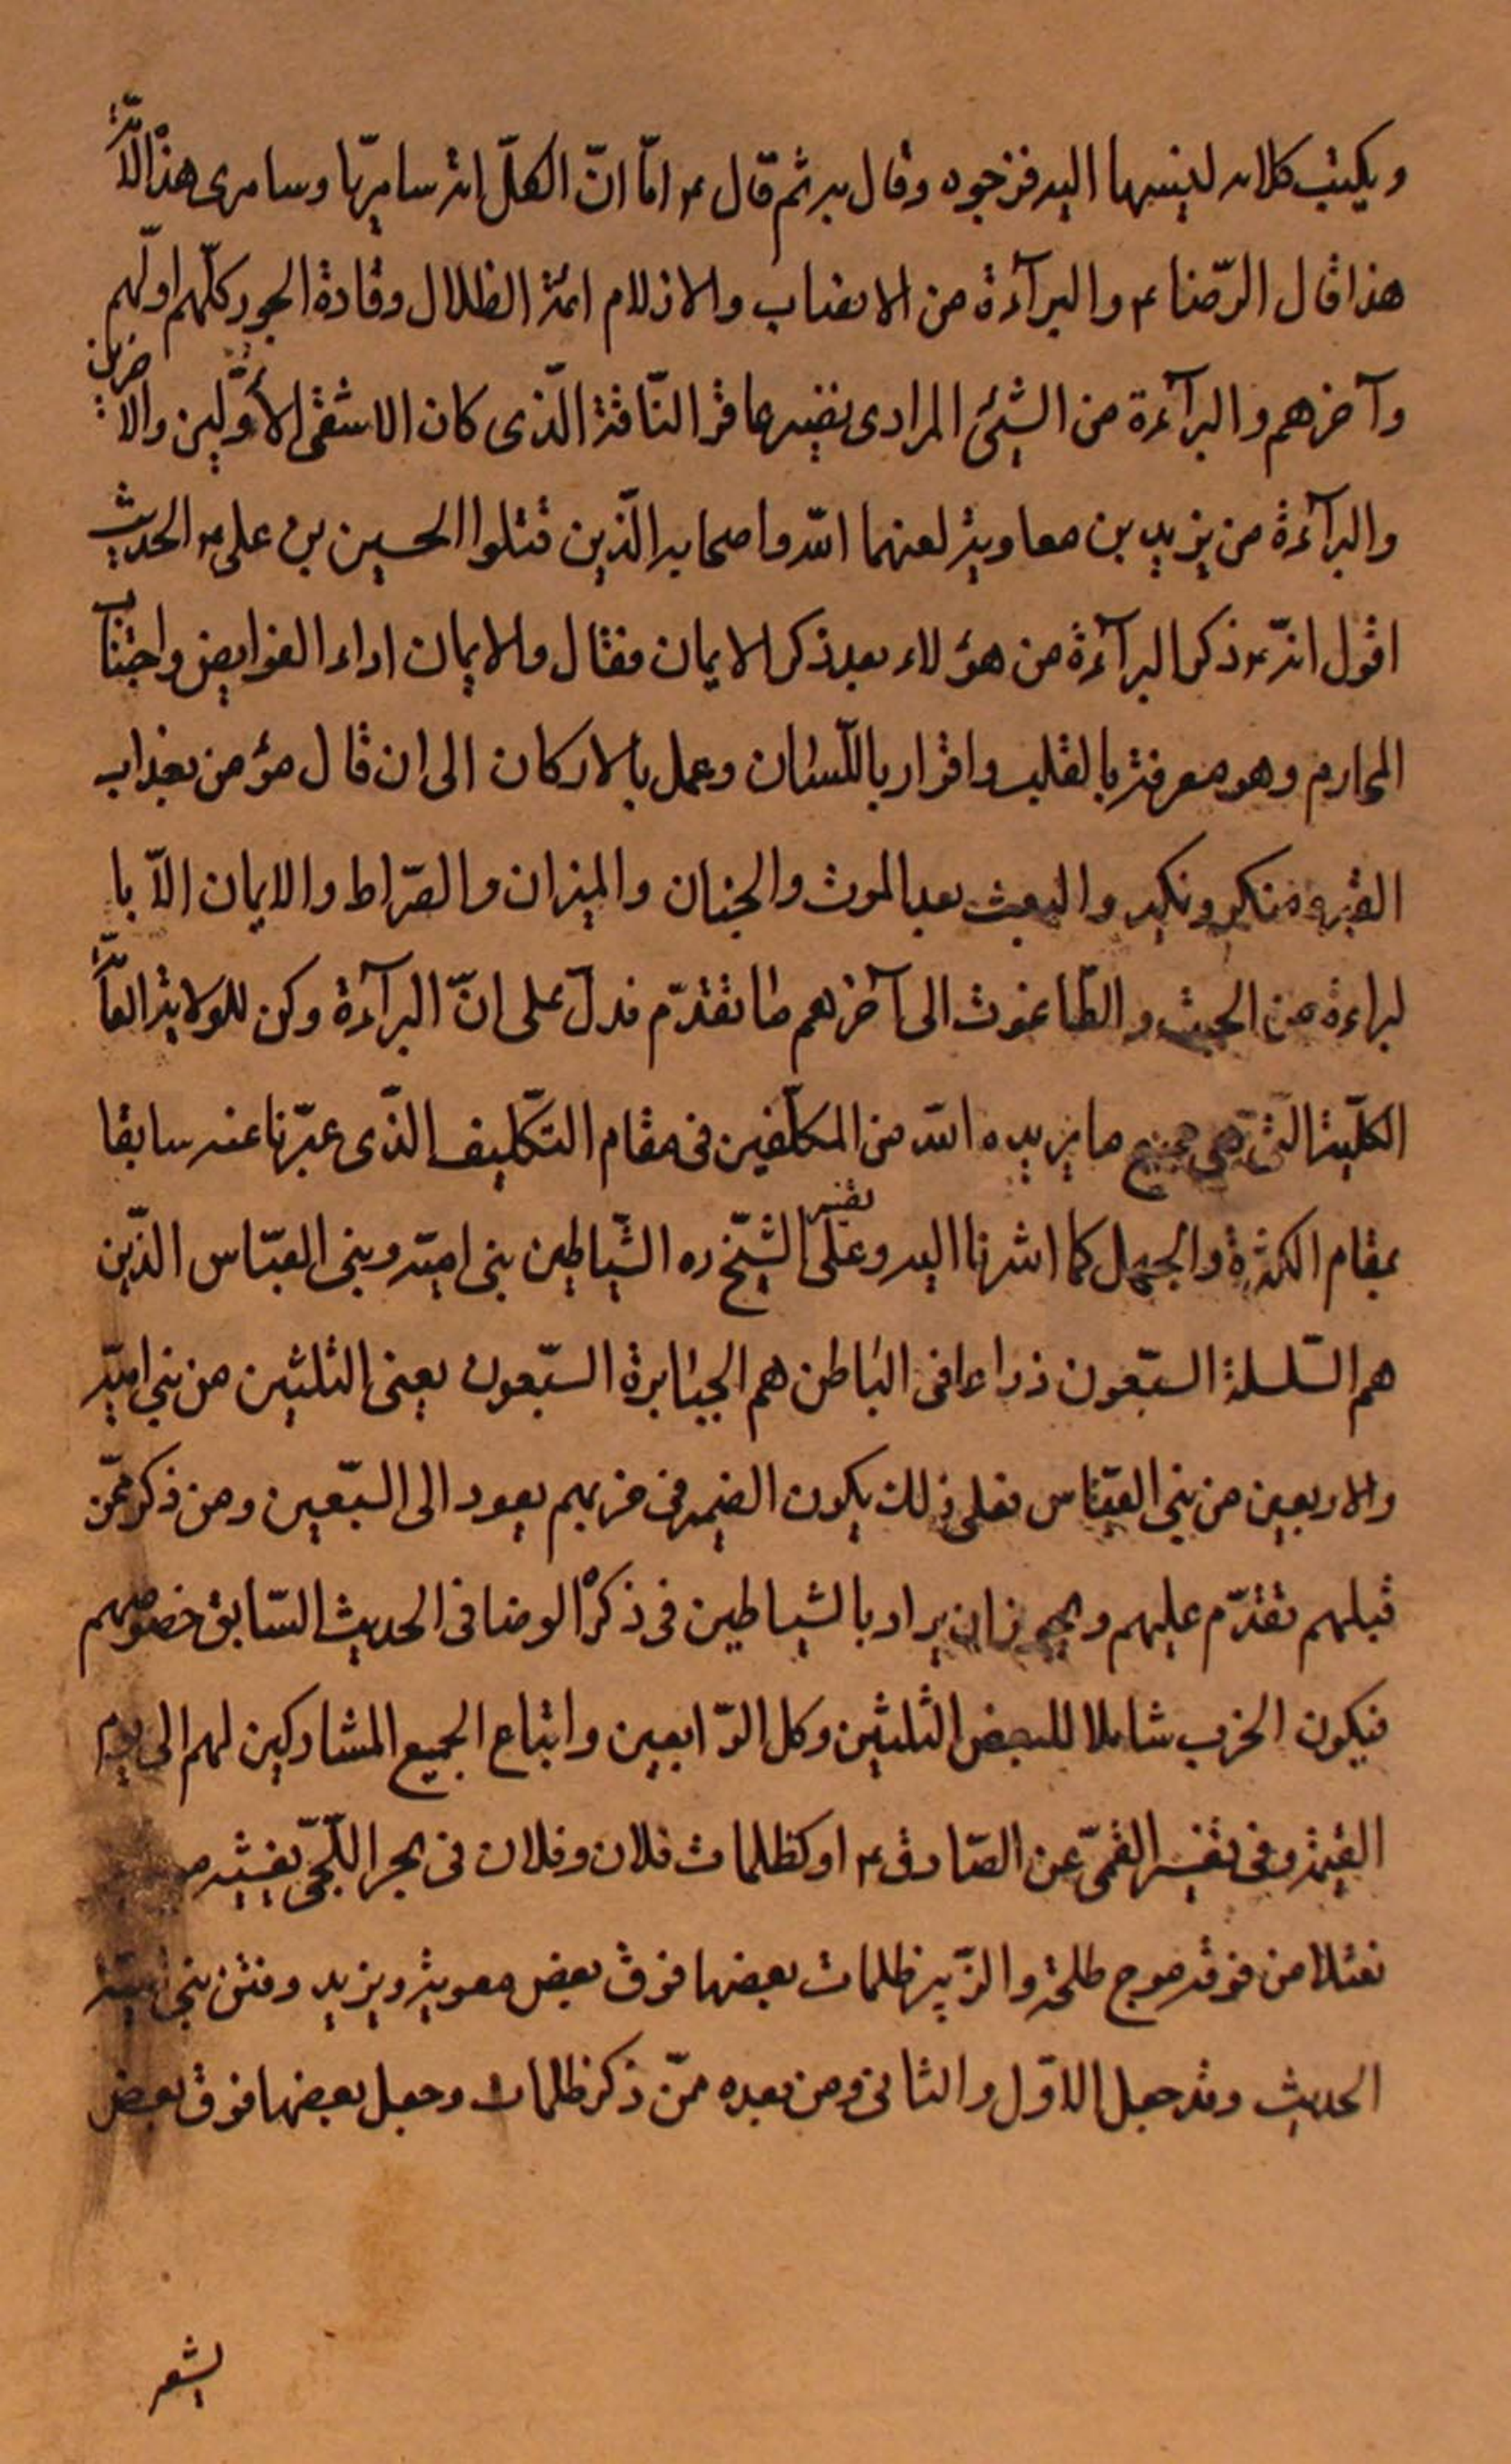 ويكتب كلامه لينسبها اليه فزجوه وقال به ثم قال ع امّا انّ لكلّ امّة سامريّا وسامرى هذه الامّة
هذا قال الرّضا ع والبرآءة من الانصاب والازلام ائمّة الظلال وقادة الجور كلّهم اولّهم
وآخرهم والبرآءة من الشيئ المرادى نضير عاقر النّاقة الّذى كان الاشقى الأوّلين والاخرين
والبرآءة من يزيد بن معاوية لعنهما الله واصحابه الّذين قتلوا الحسين بن على ع الحديث
اقول انّه ع ذكر البرآءة من هؤلاء بعد ذكر الايمان فقال والايمان اداء الفرايض واجتناب
المحارم وهو معرفة بالقلب واقرار باللّسان وعمل بالاركان الى ان قال مؤمن بعذاب
القبر ومنكر ونكير والبعث بعد الموت والجنان والميزان والصّراط والايمان الاّ با
لبراءة من الجبت والطّاغوت الى آخرهم ما تقدّم فدلّ على انّ البرآءة ركن للولاية العامّة
الكلّية الّتى هى جميع ما يريده الله من المكلّفين فى مقام التّكليف الذّى عبّرنا عنه سابقا
بمقام الكثرة والجهل كما اشرنا اليه وعلى تفسير الشّيخ ره الشّياطين بنى اميّه وبنى العبّاس الذّين
هم السّلسلة السبّعون ذراعا فى الباطن هم الجبابرة السّبعون يعنى الثلثين من بنى اميّه
والاربعين من بنى العبّاس فعلى ذلك يكون الضمير فى حزبهم يعود الى السبّعين ومن ذكر ممّن
قبلهم تقدّم عليهم ويجوز ان يراد بالشياطين فى ذكر الرضا فى الحديث السّابق خصوصهم
فيكون الحزب شاملا للبعض الثلثين وكل الرّابعين واتباع الجميع المشاركين لهم الى يوم
القيمة وفى تفسير القمىّ عن الصّادق ع او كظلمات فلان وفلان فى بحر اللّجىّ يغشيه
نعثلا من فوقه موج طلحة والزّبير ظلمات بعضها فوق بعض معوية ويزيد وفتن بنى اميّة
الحديث وقد جعل الاوّل والثانى ومن بعده ممّن ذكر ظلمات وجعل بعضها فوق بعض